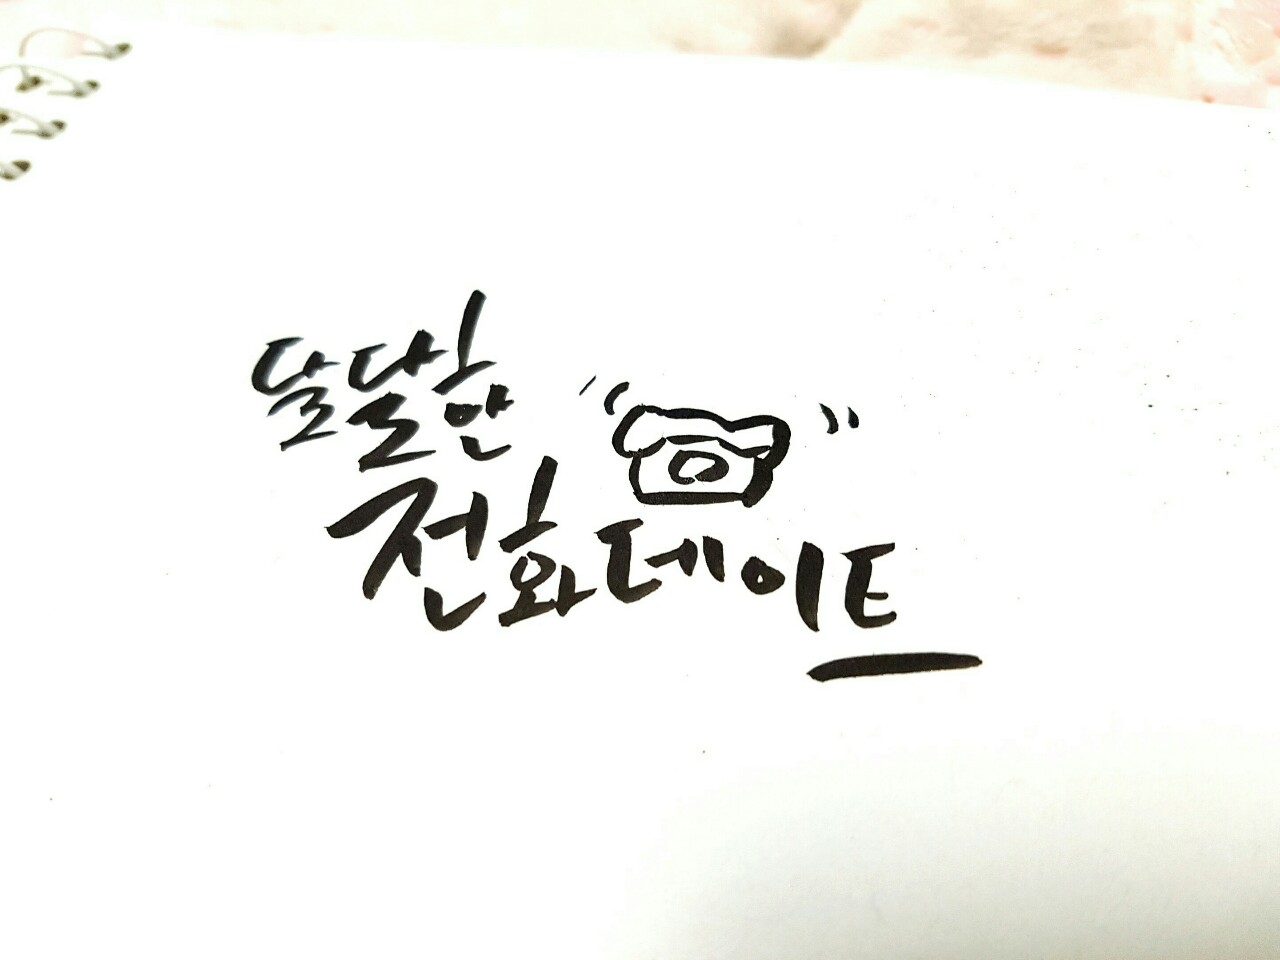 달달한
전화데이트